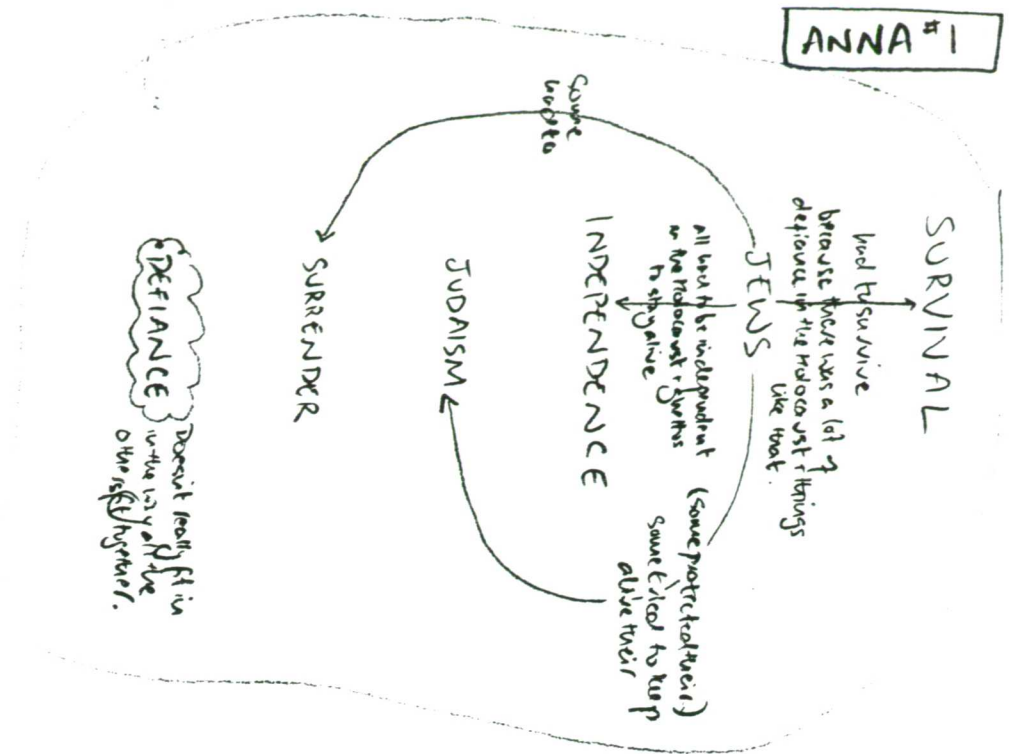 ANNA #1
SURVIVAL
had to survive
because there was a lot of
defiance in the Holocaust + things
like that.
JEWS
Some
had to
all had to be independent
in the Holocaust + ghettos
to stay alive
(some protected their)
some tried to keep
alive their
INDEPENDENCE
JUDAISM
SURRENDER
DEFIANCE
Doesn't really fit in
in the way all the
others fit together.